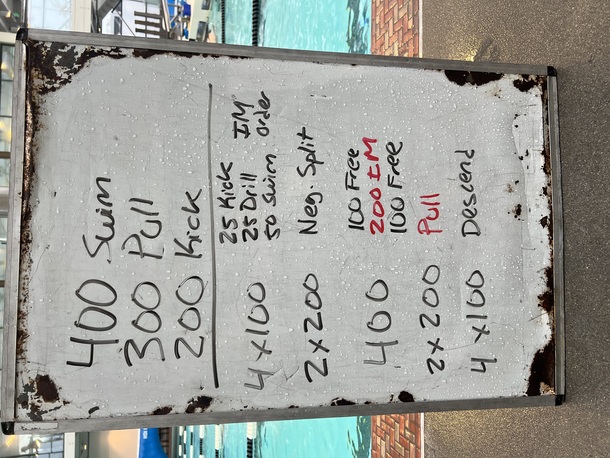 400 Swim
300 Pull
200 Kick
4 x 100 25 Kick
25 Drill
50 Swim
IM
order
2 x 200 Neg. Split
400 100 Free
200 IM
100 Free
2 x 200 Pull
4 x 100 Descend